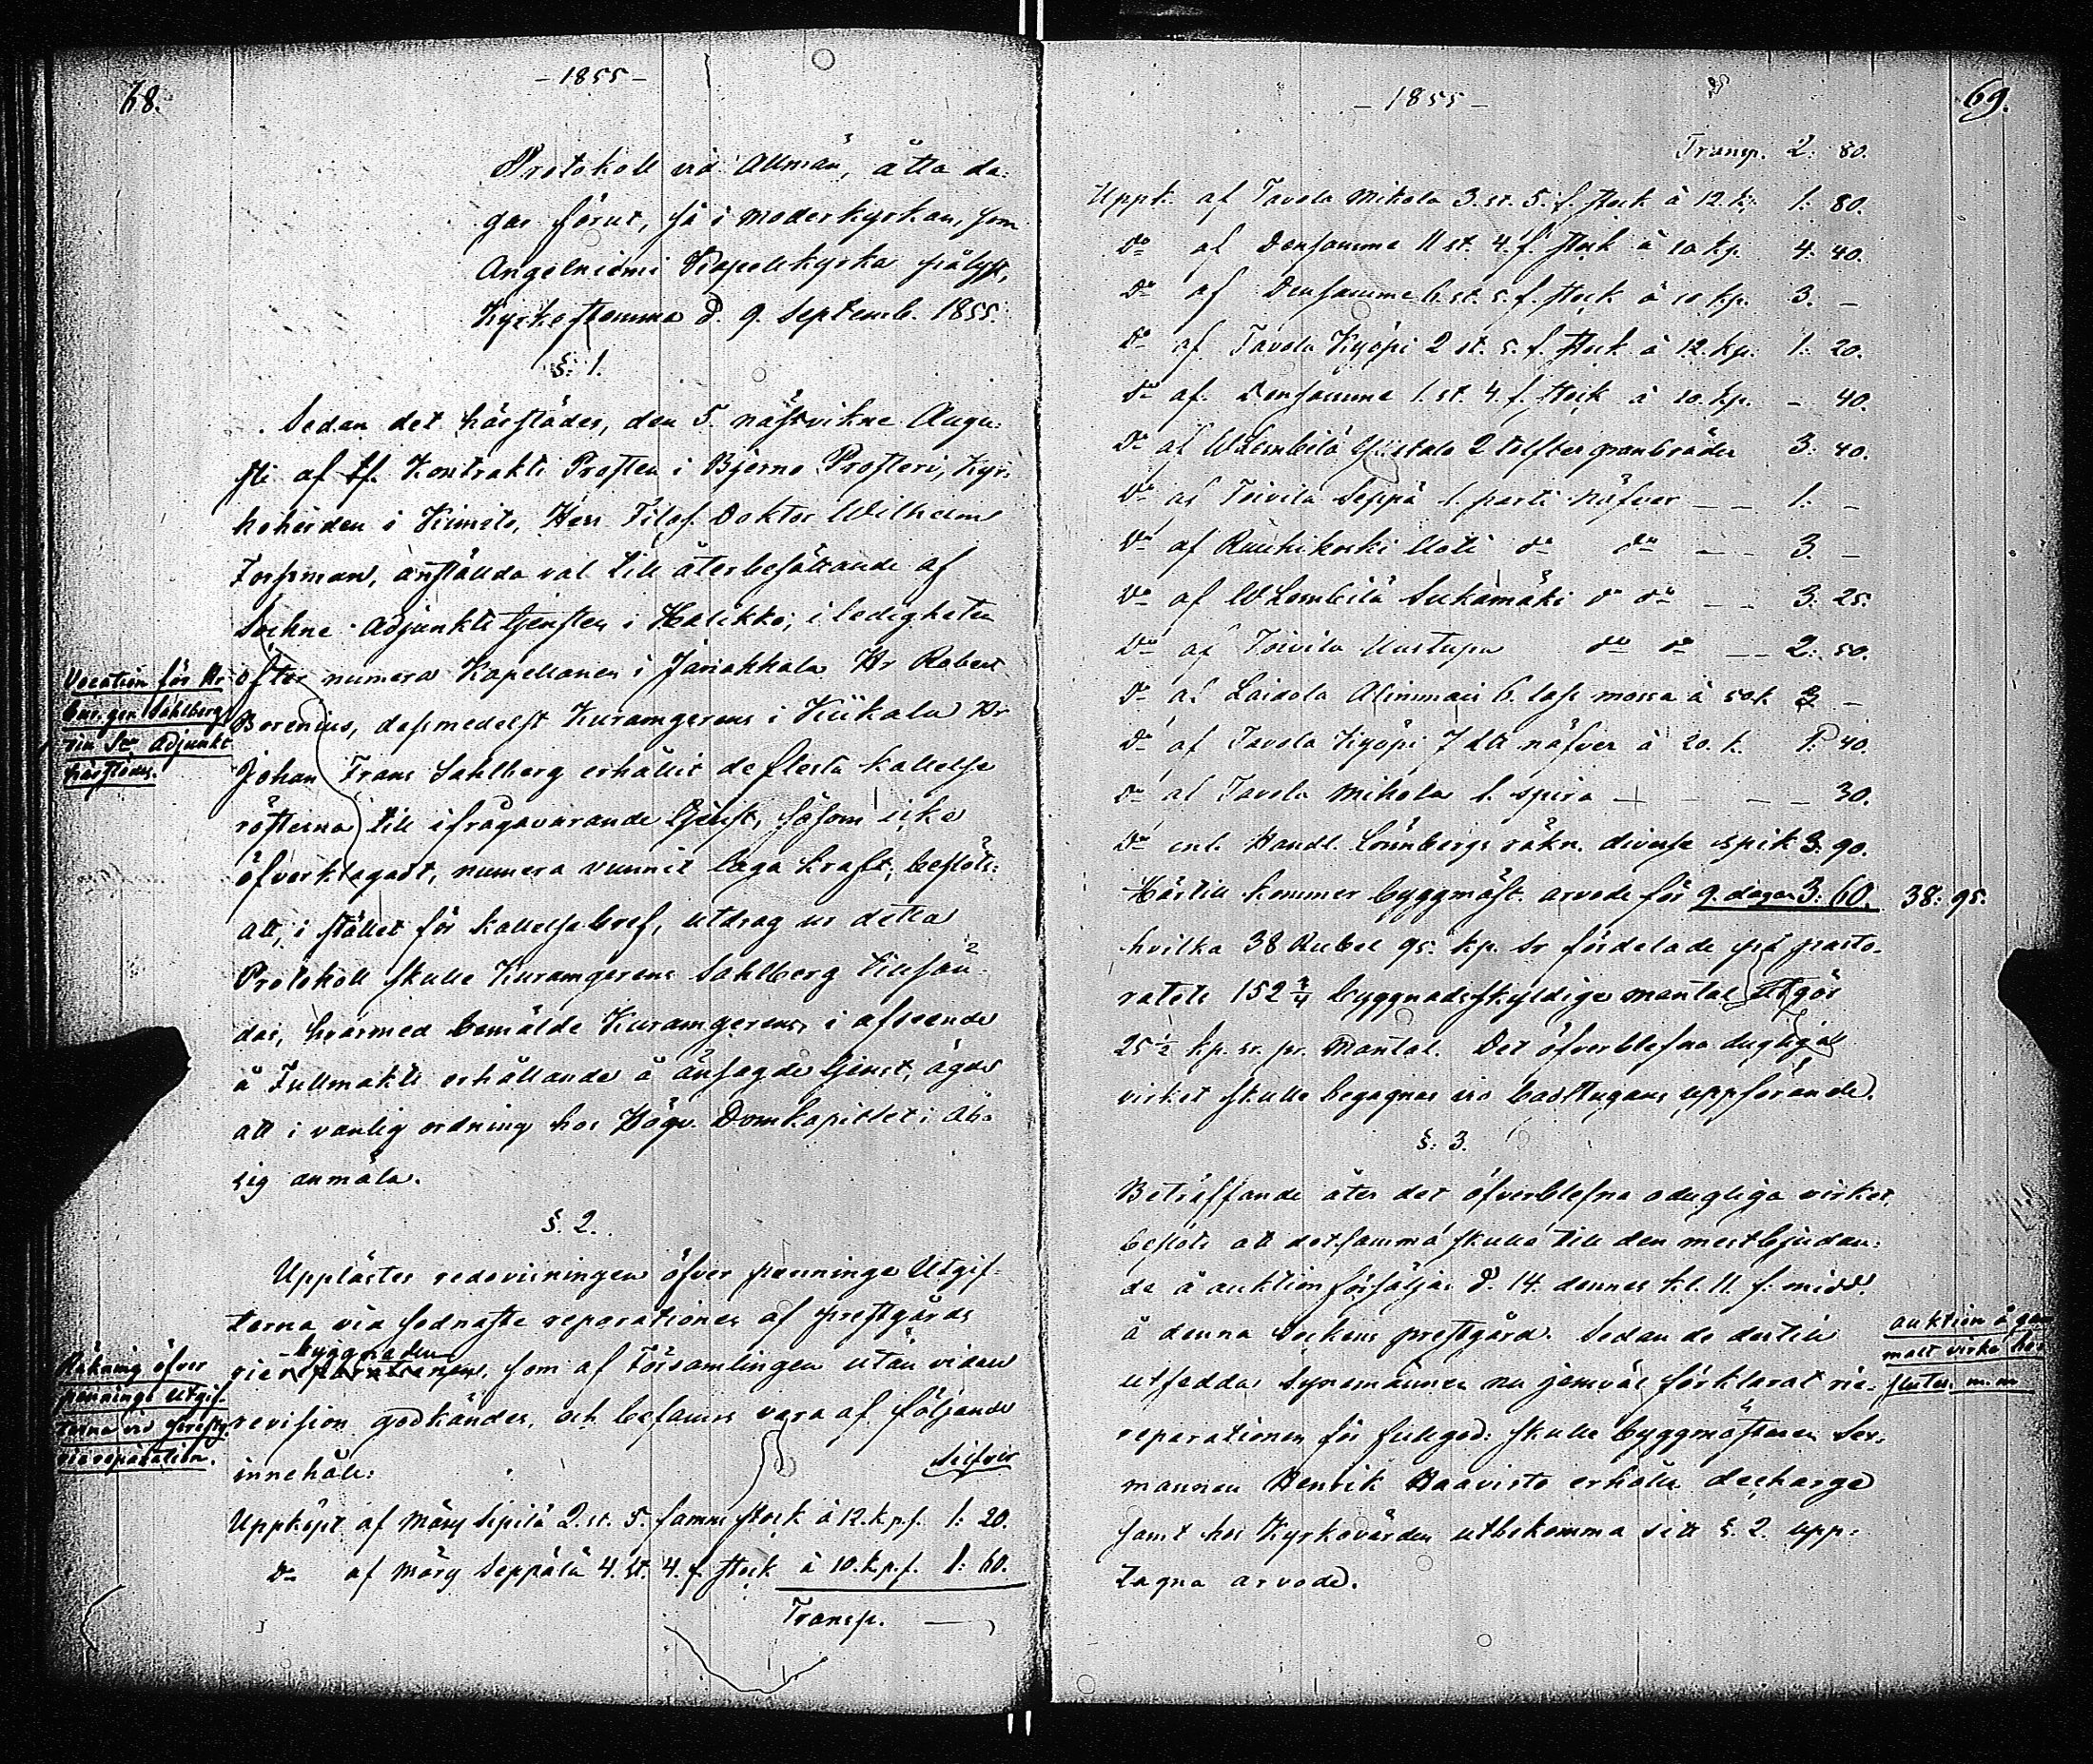 68.
- 1855 -
Protokoll vid Allmän, åtta da-
gar förut, så i moderkyrkan, som
Angelniemi Kapellkyrka pålyst,
Kyrkostämma d. 9. Septemb. 1855.
§. 1.
Sedan det härstädes, den 5. nästvikne Augu-
sti af tf. Kontrakts Prosten i Bjerno Prosteri, Kyr-
koherden i Kimito, Herr Filos. Doktor Wilhelm
Forssman, anställda val till återbesättande af
Sockne-Adjunkts tjensten i Halikko, i ledigheten
Vocation för Hr
efter numera Kapellanen i Janakkala Hr Robert
Cur. ger. Sahlberg
Borenius, dessmedelst Kuramgerens i Kiikala Hr
till Sne Adjunkt
härstädes.
Johan Frans Sahlberg erhållit de flesta kallelse
rösterna till ifrågavarande tjenst, såsom icke
öfverklagadt, numera vunnit laga kraft; beslöts:
att, i stället för kallelsebref, utdrag ur detta
Protokoll skulle Kuramgerens Sahlberg tillsän-
das, hvarmed bemälde Kuramgerens, i afseende
å Fullmakts erhållande å ansagde tjenst, äger
att i vanlig ordning hos Högv. Domkapitlet i Åbo
sig anmäla.
§. 2.
Upplästes redovisningen öfver penninge Utgif-
terna vid sednaste reparationen af prestgårds
byggnaden
Räkning öfver
rie reparationen, som af Församlingen utan vidare
pennings Utgif-
terna vid prestg.
revision godkändes, och befanns vara af följande
rie reparation.
innehåll:
Silfver
Uppköpt af Märy Sipilä 2. st. 5. famns stock à 12. k.p.f. 1: 20.
Do af Märy Seppälä 4. st. 4. f. stock à 10. k.p.f. 1: 60.
Transp. —
- 1855 -
69.
Transp. 2: 80.
Uppk. af Tavola Mikola 3. st. 5. f. stock à 12. k. 1: 80.
Do af Densamme 11 st. 4. f. stock à 10. kp. 4: 40.
Do af Densamme 6. st. 5. f. stock à 10. kp. 3. –
Do af Tavola Kyöpi 2 st. 5. f. stock à 12. kp. 1: 20.
Do af Densamme 1. st. 4. f. stock à 10. kp. – 40.
Do af WLembilä Yistalo 2 tolfter granbräder 3: 40.
Do af Toivila Seppä 1. parti näfver – – 1. –
Do af Ruuhikoski Uoti do do – – 3. –
Do af WLembilä Sukamäki do do – – 3: 25.
Do af Toivila Uustupa do do – – 2: 50.
Do af Laidola Alimmais 6. lass mossa à 50 k. 3 –
Do af Tavola Kyöpi 7 lb näfver à 20. k. 1: 40.
Do af Tavola Mikola 1. spira – – – – 30.
Do enl. Handl. Lönnbergs räkn. diverse spik 3. 90.
Härtill kommer byggmäst. arvode för 9. dagar 3: 60. 38: 95.
hvilka 38 Rubel 95. kp. Sr fördelade på pasto-
ratets 152 3/4 byggnadsskyldige mantal utgör
25 1/2 kp. sr. pr. Mantal. Det öfverblefna dugliga
virket skulle begagnas vid badstugans uppförande.
§. 3.
Beträffande åter det öfverblefna odugliga virket,
beslöts att detsamma skulle till den mestbjudan-
de å auktion försäljas d. 14. dennes kl. 11. f. midd.
å denna sockens prestgård. Sedan de dertill
auktion å gam
malt virke be-
utsedda synemännen nu jemväl förklarat rie-
slutes. m. m
reparationen för fullgod: skulle byggmästaren Ser-
mannen Henrik Haavisto erhålla decharge
samt hos Kyrkovärden utbekomma sitt §. 2. upp-
tagna arvode.